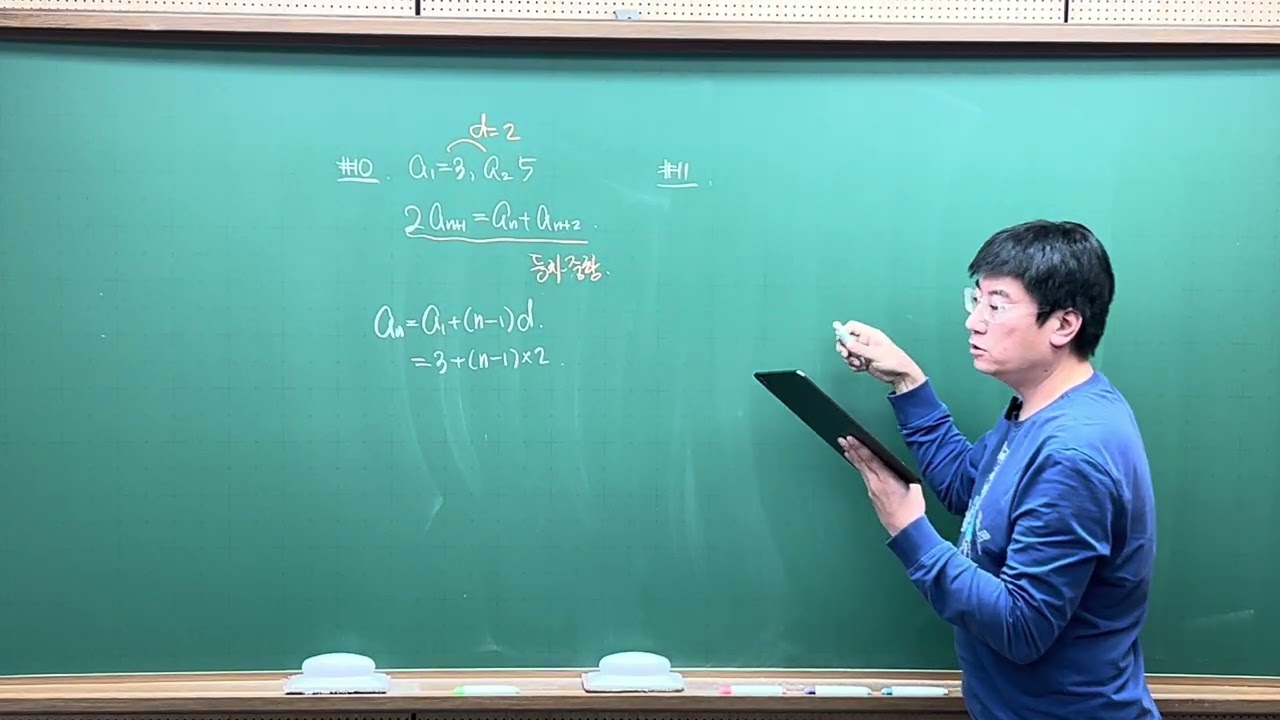 d=2
#10. a₁=3, a₂ 5
2aₙ₊₁=aₙ+aₙ₊₂.
등차중항.
aₙ=a₁+(n-1)d.
=3+(n-1)×2.
#11.